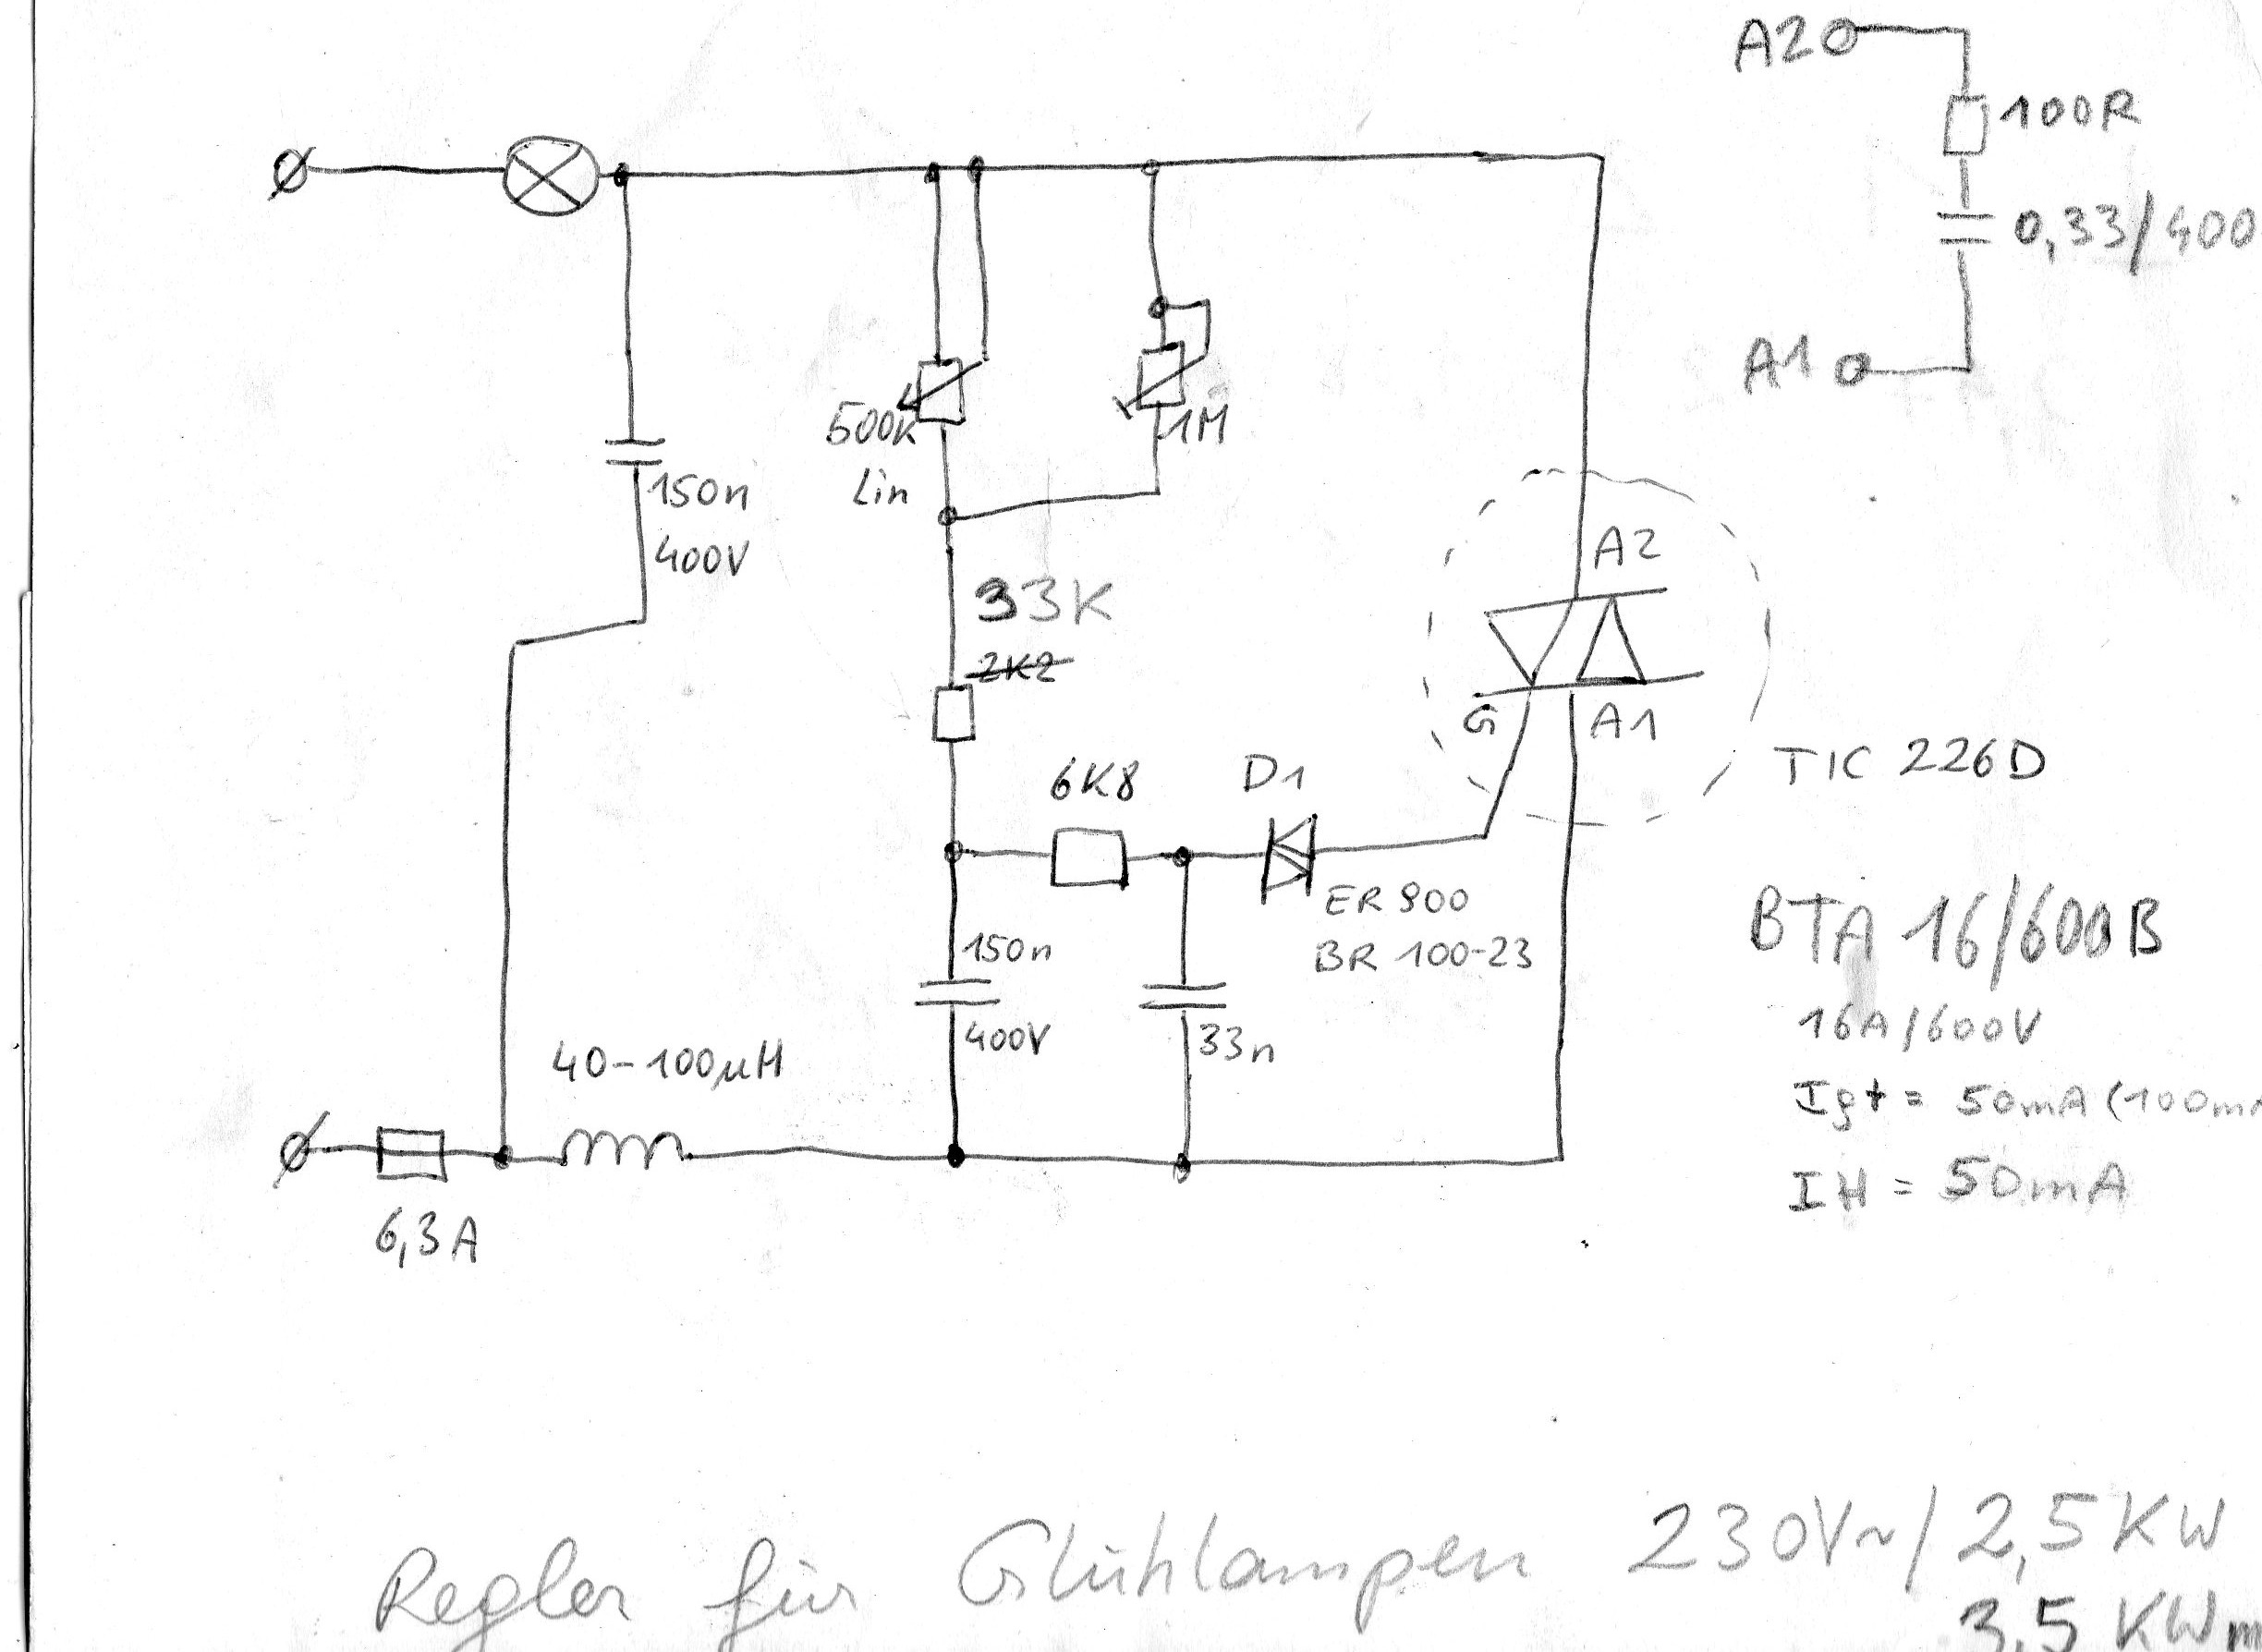 A2
100R
0,33/400
A1
500K
Lin
1M
150n
400V
33K
2K2
A2
G
A1
TIC 226D
6K8
D1
ER 900
BR 100-23
BTA 16/600B
16A/600V
Igt = 50mA (100mA
IH = 50mA
150n
400V
33n
40-100µH
6,3A
Regler für Glühlampen 230V~/2,5KW
3,5 KW